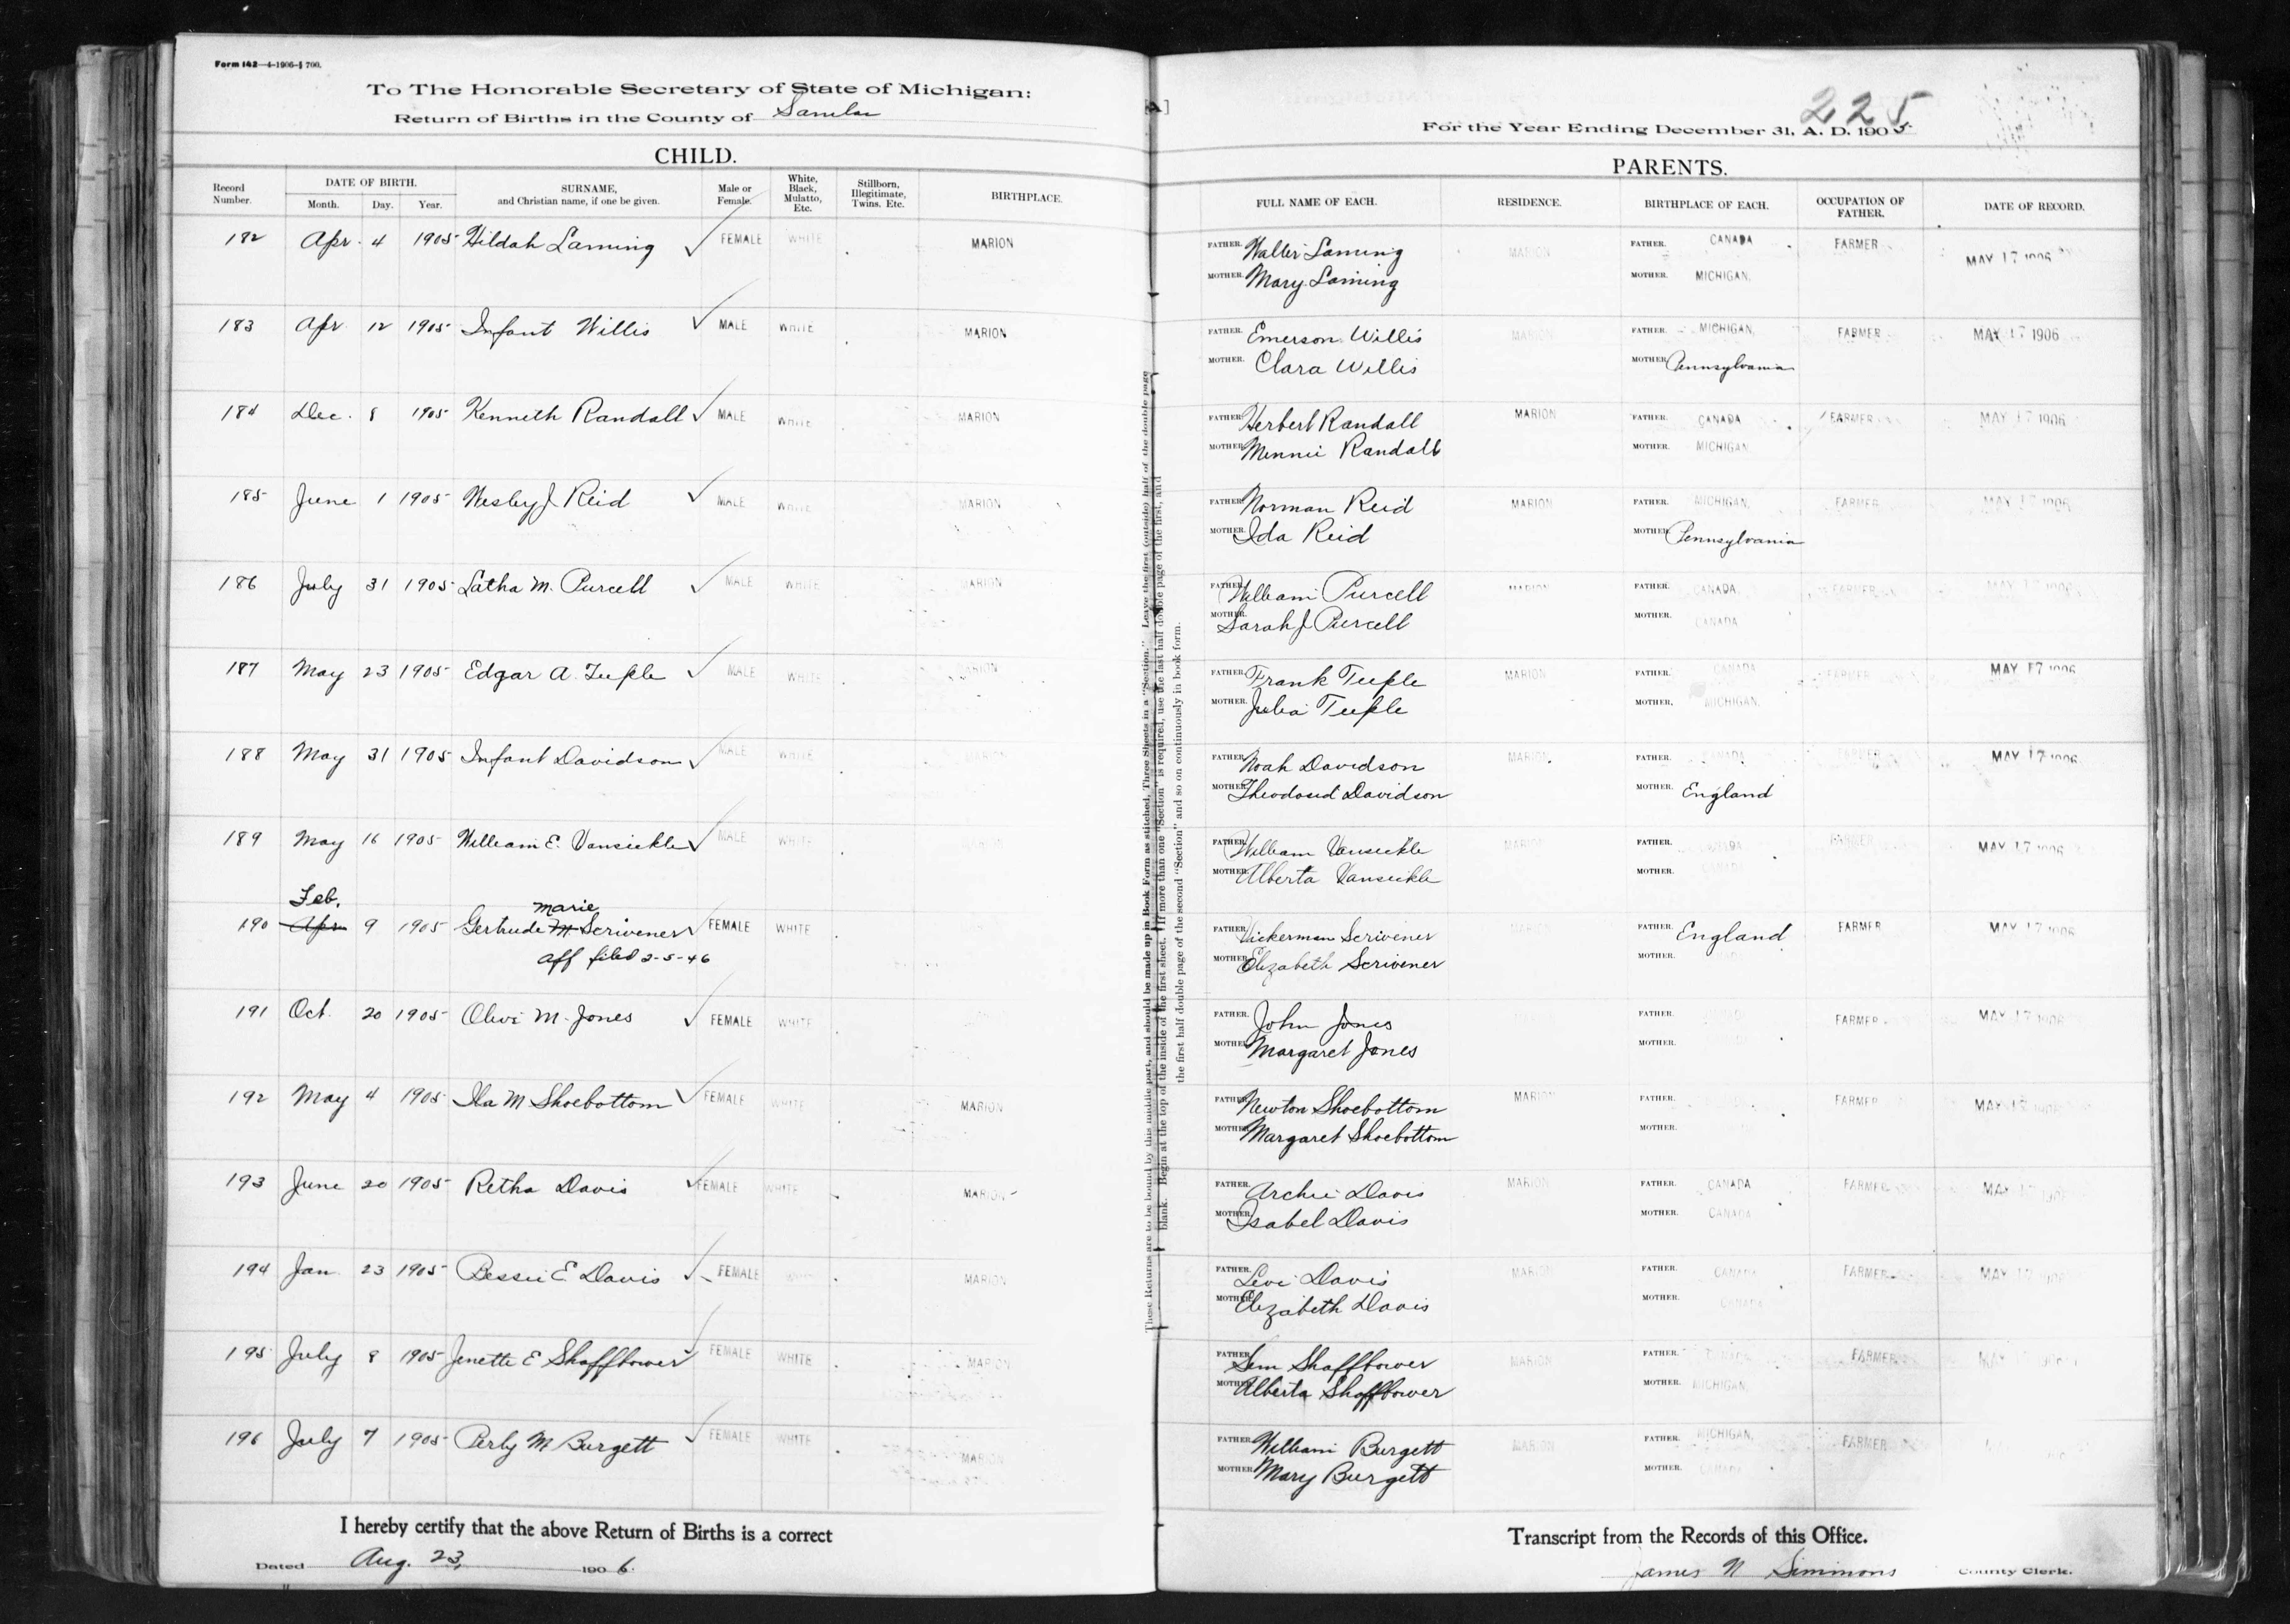 Form 142—4-1906-§ 700.
To The Honorable Secretary of State of Michigan:
Return of Births in the County of Sanilac
CHILD.
Record Number. DATE OF BIRTH. Month. Day. Year. SURNAME, and Christian name, if one be given. Male or Female. White, Black, Mulatto, Etc. Stillborn, Illegitimate, Twins, Etc. BIRTHPLACE.
182 Apr. 4 1905 Hildah Laming FEMALE WHITE MARION
183 Apr 12 1905 Infant Willis MALE WHITE MARION
184 Dec. 8 1905 Kenneth Randall MALE WHITE MARION
185 June 1 1905 Wesley J Reid MALE WHITE MARION
186 July 31 1905 Latha M. Purcell MALE WHITE MARION
187 May 23 1905 Edgar A. Teeple MALE WHITE MARION
188 May 31 1905 Infant Davidson MALE WHITE MARION
189 May 16 1905 William E. Vansickle MALE WHITE MARION
Feb. Marie
190 Apr 9 1905 Gertrude M Scrivener FEMALE WHITE
aff filed 2-5-46
191 Oct. 20 1905 Olive M. Jones FEMALE WHITE
192 May 4 1905 Ila M Shoebottom FEMALE WHITE MARION
193 June 20 1905 Retha Davis FEMALE WHITE MARION
194 Jan 23 1905 Bessie E Davis FEMALE MARION
195 July 8 1905 Jenette E Shaffbower FEMALE WHITE MARION
196 July 7 1905 Perly M Burgett FEMALE WHITE MARION
I hereby certify that the above Return of Births is a correct
Dated Aug. 23, 1906.
These Returns are to be bound by this middle part, and should be made up in Book Form as stitched, Three Sheets in a "Section." Leave the first (outside) half of the double page
blank. Begin at the top of the inside of the first sheet. If more than one "Section" is required, use the last half double page of the first, and
the first half double page of the second "Section" and so on continuously in book form.
225
For the Year Ending December 31, A. D. 1905
PARENTS.
FULL NAME OF EACH. RESIDENCE. BIRTHPLACE OF EACH. OCCUPATION OF FATHER. DATE OF RECORD.
FATHER. Walter Laming MARION FATHER. CANADA FARMER MAY 17 1906
MOTHER. Mary Laming MOTHER. MICHIGAN.
FATHER. Emerson Willis MARION FATHER. MICHIGAN. FARMER MAY 17 1906
MOTHER. Clara Willis MOTHER. Pennsylvania
FATHER. Herbert Randall MARION FATHER. CANADA FARMER MAY 17 1906
MOTHER. Minnie Randall MOTHER. MICHIGAN
FATHER. Norman Reid MARION FATHER. MICHIGAN. FARMER MAY 17 1906
MOTHER. Ida Reid MOTHER. Pennsylvania
FATHER. William Purcell MARION FATHER. CANADA. FARMER MAY 17 1906
MOTHER. Sarah J Purcell MOTHER. CANADA
FATHER. Frank Teeple MARION FATHER. CANADA FARMER MAY 17 1906
MOTHER. Julia Teeple MOTHER. MICHIGAN.
FATHER. Noah Davidson MARION FATHER. CANADA FARMER MAY 17 1906
MOTHER. Davidson MOTHER. England
FATHER. William Vansickle MARION FATHER. CANADA FARMER MAY 17 1906
MOTHER. Alberta Vansickle MOTHER. CANADA
FATHER. Vickerman Scrivener MARION FATHER. England FARMER MAY 17 1906
MOTHER. Elizabeth Scrivener MOTHER.
FATHER. John Jones FATHER. FARMER MAY 17 1906
MOTHER. Margaret Jones MOTHER.
FATHER. Newton Shoebottom MARION FATHER. FARMER MAY 17 1906
MOTHER. Margaret Shoebottom MOTHER.
FATHER. Archie Davis MARION FATHER. CANADA FARMER MAY
MOTHER. Isabel Davis MOTHER. CANADA
FATHER. Levi Davis MARION FATHER. CANADA FARMER MAY 17 1906
MOTHER. Elizabeth Davis MOTHER. CANADA
FATHER. Sem Shaffbower MARION FATHER. FARMER MAY
MOTHER. Alberta Shaffbower MOTHER. MICHIGAN.
FATHER. William Burgett MARION FATHER. MICHIGAN. FARMER
MOTHER. Mary Burgett MOTHER. CANADA
Transcript from the Records of this Office.
James N Simmons County Clerk.